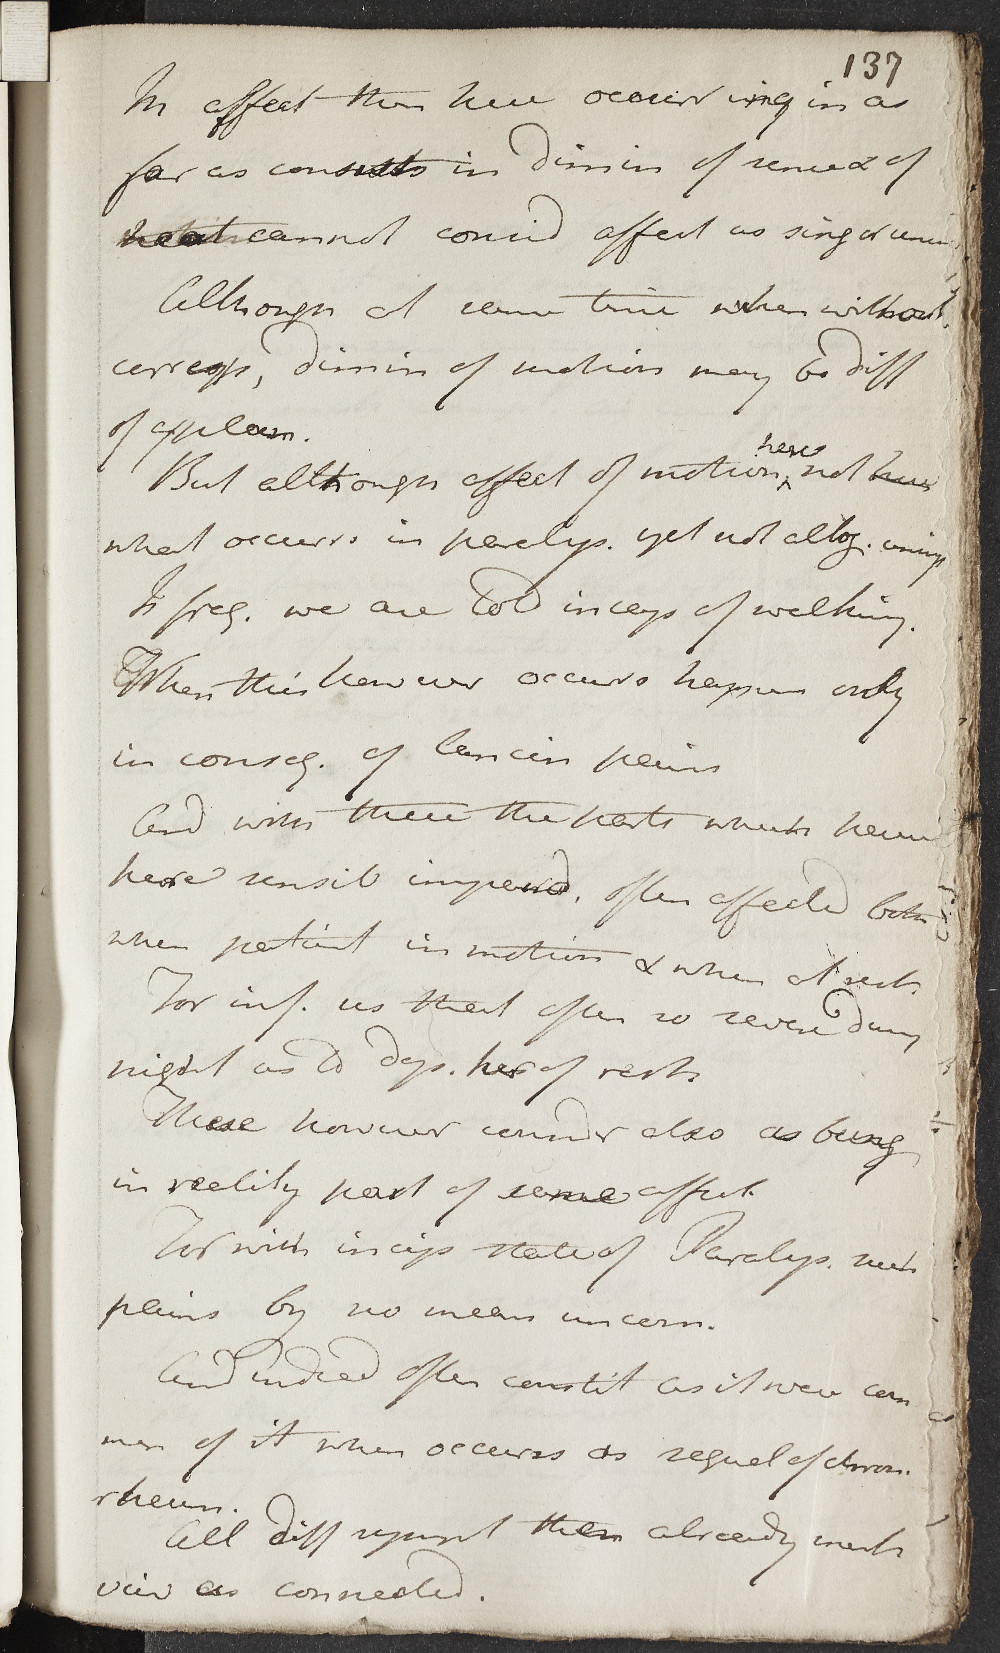 137
In affect then here occurring in as
far as consists in dimin of sense & of
heat cannot consid affect as sing or
Although at same time when without
corresp, dimin of motion may be diff
of explan.
But although affect of motion, here not
what occurs in paralys. yet not altog. unimp
Is freq. we are told incap of walking.
When this however occurs happens only
in conseq. of lancin pains
And with these the parts which have
here sensib impaired, often affected both
when patient in motion & when at rest
For inf. us that often so severe during
night as to dep. her of rest
These however consider also as being
in reality part of same affect.
For with incip state of Paralys. such
pains by no means uncom.
And indeed often constit as it were com
men of it when occurs as sequel of chron.
rheum.
All diff sympt then already ment
view as connected.